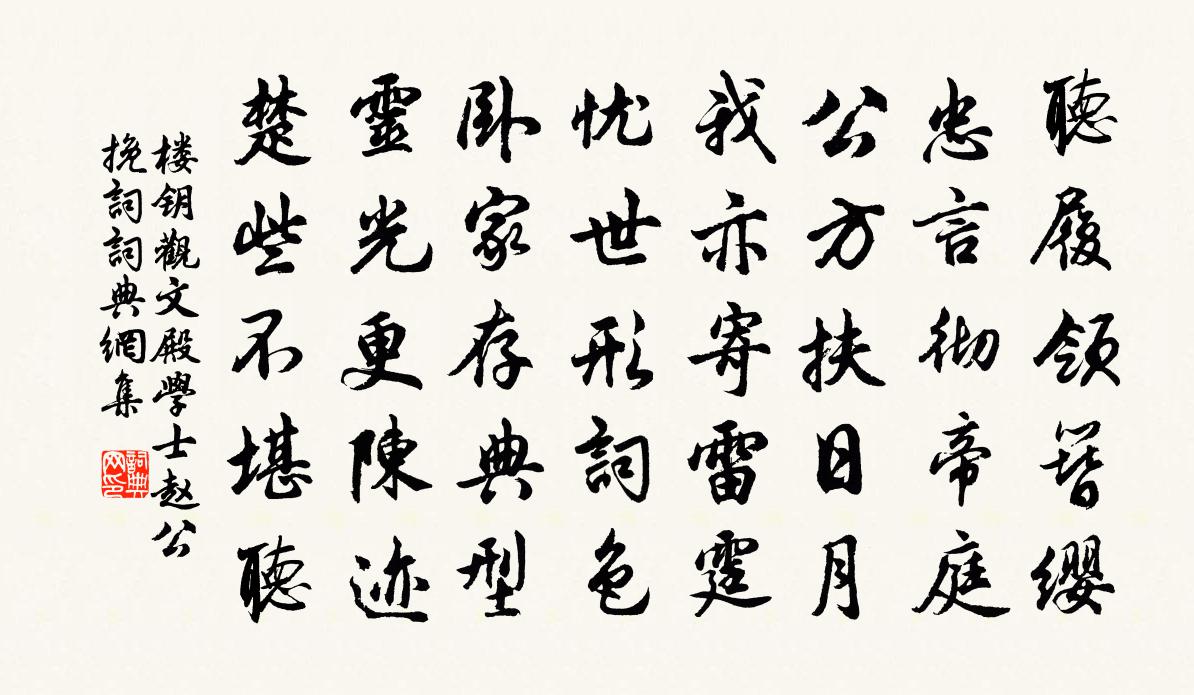 聽履領簪纓
忠言彻帝庭
公方扶日月
我亦寄雷霆
忧世形詞色
卧家存典型
靈光更陳迹
楚些不堪聽
楼钥觀文殿學士赵公
挽詞詞典網集
詞典
网印